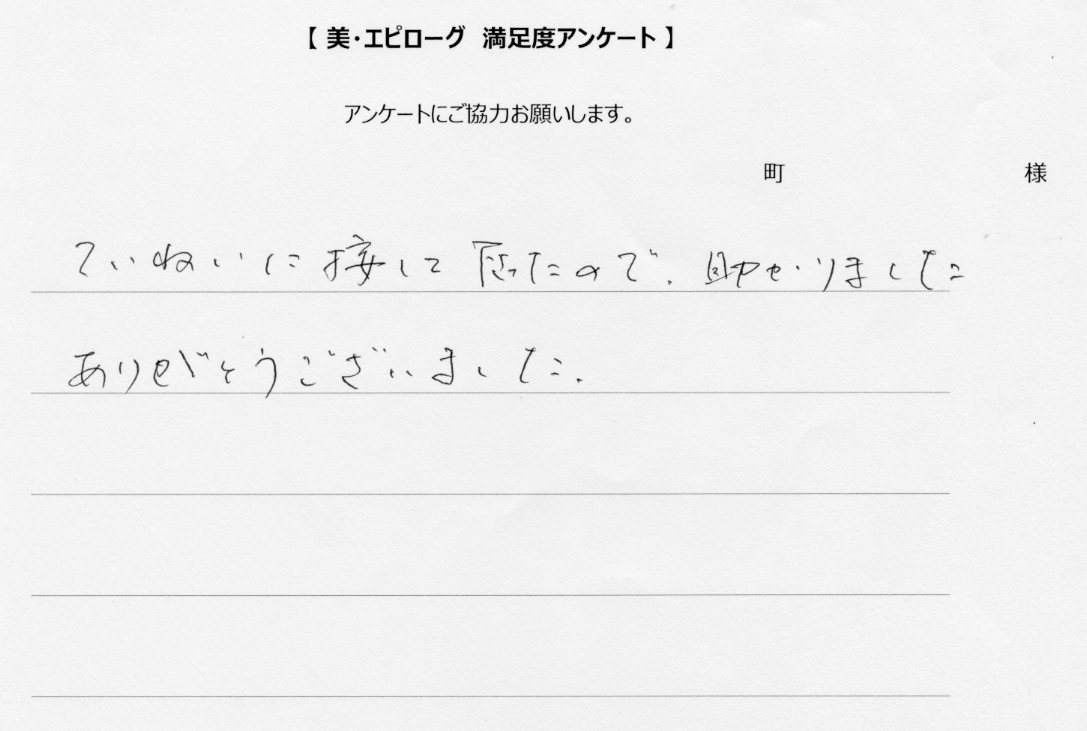 【 美・エピローグ 満足度アンケート 】
アンケートにご協力お願いします。
町 様
ていねいに接して下さったので、助かりました
ありがとうございました。